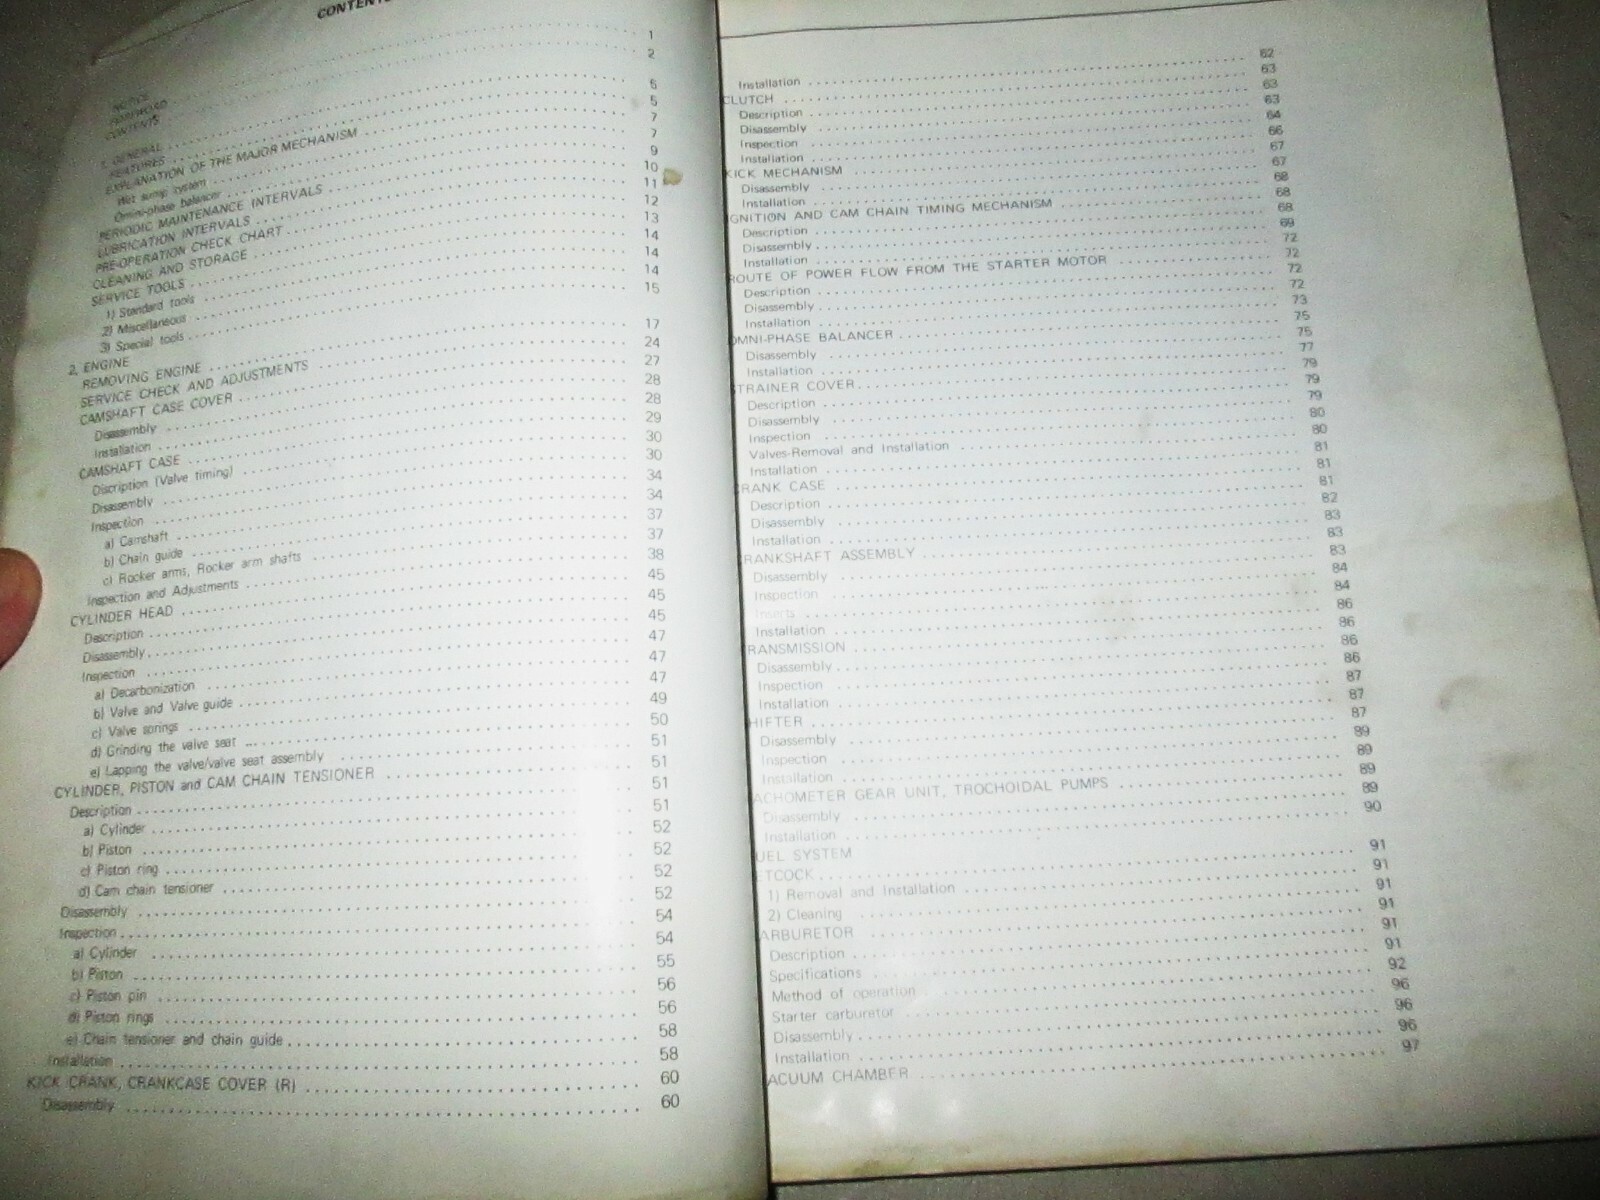 CONTENTS
NOTICE
FOREWORD 1
CONTENTS 2
1. GENERAL 5
FEATURES 5
EXPLANATION OF THE MAJOR MECHANISM 7
Wet sump system 7
Omni-phase balancer 9
PERIODIC MAINTENANCE INTERVALS 10
LUBRICATION INTERVALS 11
PRE-OPERATION CHECK CHART 12
CLEANING AND STORAGE 13
SERVICE TOOLS 14
1) Standard tools 14
2) Miscellaneous 14
3) Special tools 15
2. ENGINE
REMOVING ENGINE 17
SERVICE CHECK AND ADJUSTMENTS 24
CAMSHAFT CASE COVER 27
Disassembly 28
Installation 28
CAMSHAFT CASE 29
Discription (Valve timing) 30
Disassembly 30
Inspection 34
a) Camshaft 34
b) Chain guide 37
c) Rocker arms, Rocker arm shafts 37
Inspection and Adjustments 38
CYLINDER HEAD 45
Description 45
Disassembly 45
Inspection 47
a) Decarbonization 47
b) Valve and Valve guide 47
c) Valve springs 49
d) Grinding the valve seat 50
e) Lapping the valve/valve seat assembly 51
CYLINDER, PISTON and CAM CHAIN TENSIONER 51
Description 51
a) Cylinder 51
b) Piston 52
c) Piston ring 52
d) Cam chain tensioner 52
Disassembly 52
Inspection 54
a) Cylinder 54
b) Piston 55
c) Piston pin 56
d) Piston rings 56
e) Chain tensioner and chain guide 58
Installation 58
KICK CRANK, CRANKCASE COVER (R) 60
Disassembly 60
Installation 62
CLUTCH 63
Description 63
Disassembly 63
Inspection 64
Installation 66
KICK MECHANISM 67
Disassembly 67
Installation 68
IGNITION AND CAM CHAIN TIMING MECHANISM 68
Description 68
Disassembly 69
Installation 72
ROUTE OF POWER FLOW FROM THE STARTER MOTOR 72
Description 72
Disassembly 72
Installation 73
OMNI-PHASE BALANCER 75
Disassembly 75
Installation 77
STRAINER COVER 79
Description 79
Disassembly 79
Inspection 80
Valves-Removal and Installation 80
Installation 81
CRANK CASE 81
Description 81
Disassembly 82
Installation 83
RANKSHAFT ASSEMBLY 83
Disassembly 83
Inspection 84
Inserts 84
Installation 86
RANSMISSION 86
Disassembly 86
Inspection 86
Installation 87
HIFTER 87
Disassembly 87
Inspection 89
Installation 89
ACHOMETER GEAR UNIT, TROCHOIDAL PUMPS 89
Disassembly 89
Installation 90
UEL SYSTEM
ETCOCK 91
1) Removal and Installation 91
2) Cleaning 91
ARBURETOR 91
Description 91
Specifications 91
Method of operation 92
Starter carburetor 96
Disassembly 96
Installation 96
ACUUM CHAMBER 97